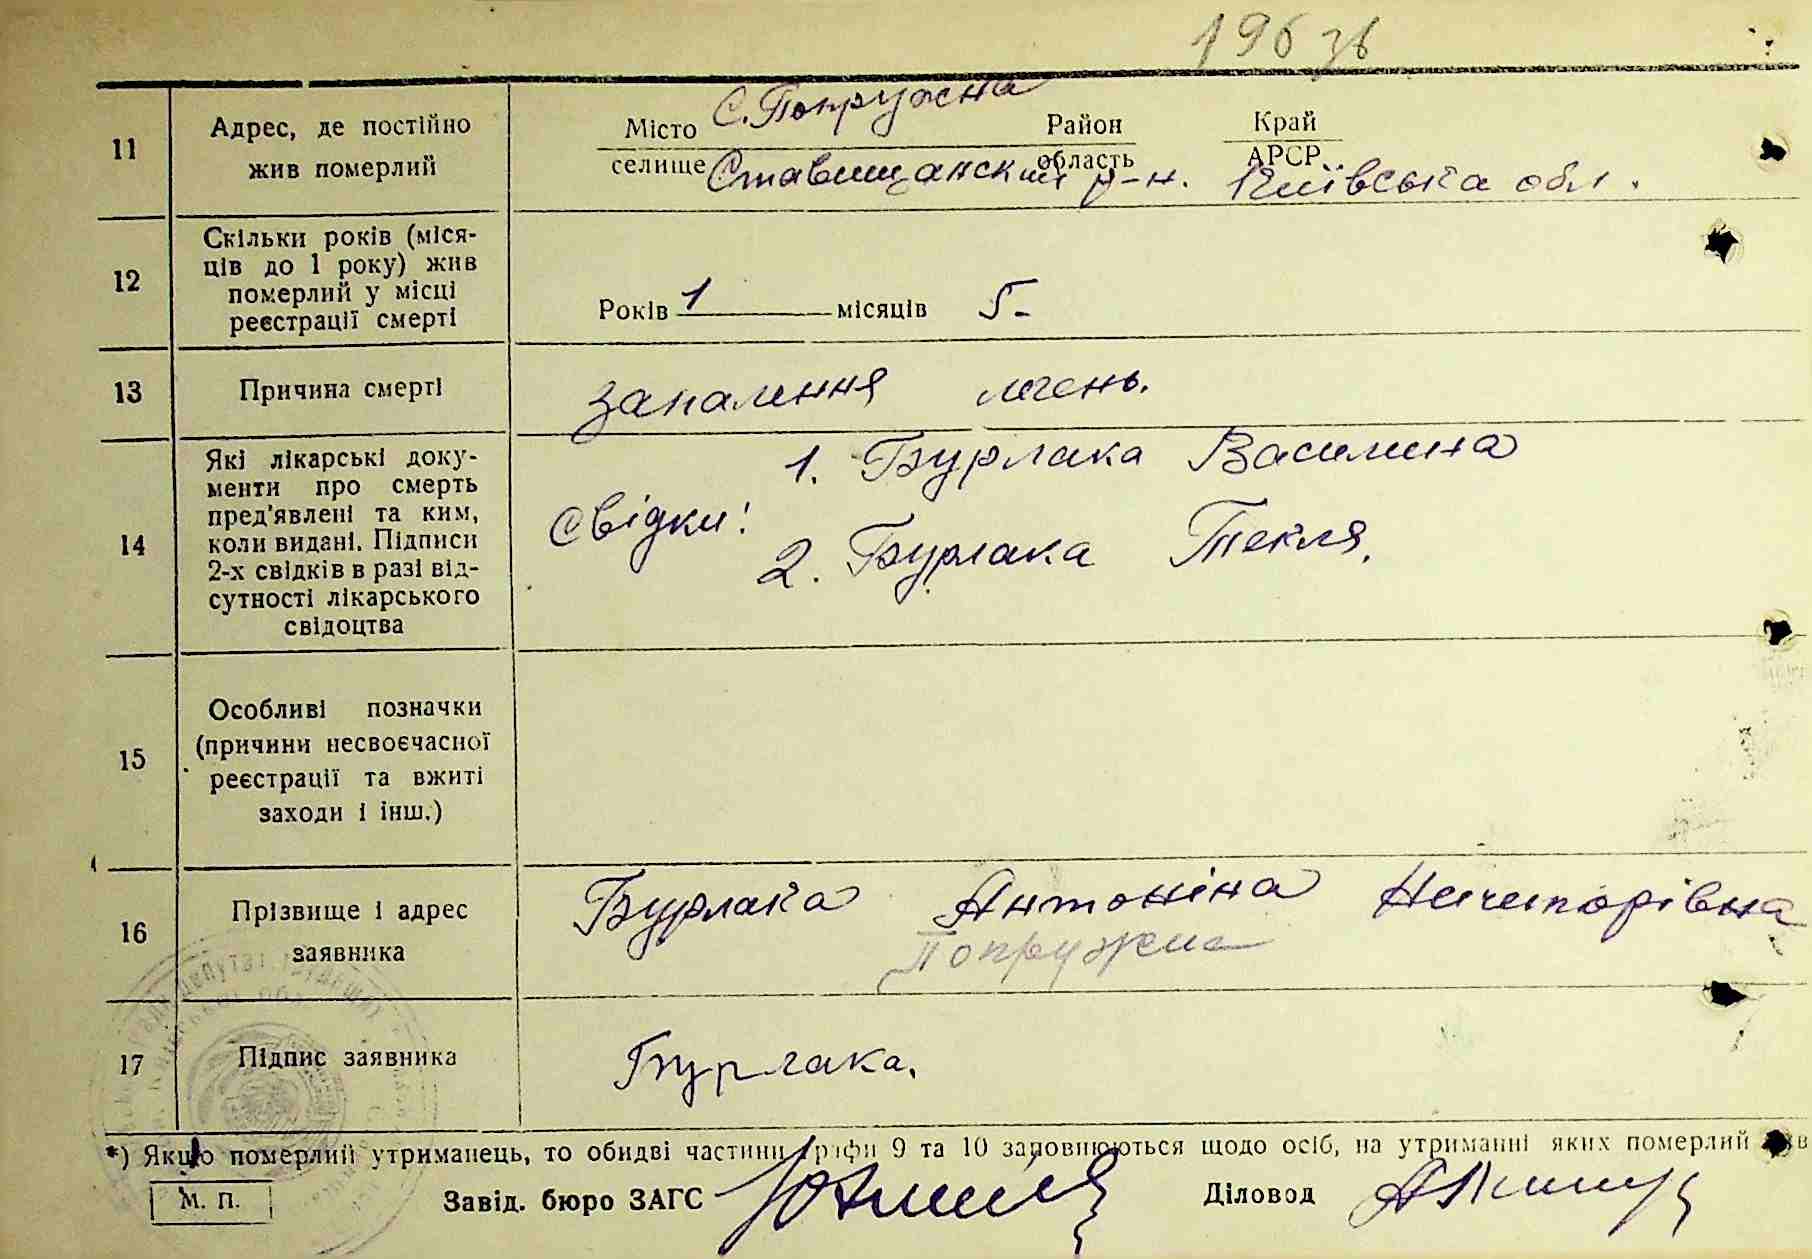 196 зв
11 Адрес, де постійно жив померлий
Місто С. Попружна Район Край
селище область АРСР
Ставищанский р-н. Київська обл.
12 Скільки років (міся-
ців до 1 року) жив
померлий у місці
реєстрації смерті
Років 1 місяців 5-
13 Причина смерті
запалення легень.
14 Які лікарські доку-
менти про смерть
пред'явлені та ким,
коли видані. Підписи
2-х свідків в разі від-
сутності лікарського
свідоцтва
Свідки!
1. Бурлака Василина
2. Бурлака Текля.
15 Особливі позначки
(причини несвоєчасної
реєстрації та вжиті
заходи і інш.)
16 Прізвище і адрес
заявника
Бурлака Антоніна Ничипорівна
Попружна
17 Підпис заявника
Бурлака.
*) Якщо померлий утриманець, то обидві частини графи 9 та 10 заповнюються щодо осіб, на утриманні яких померлий
М. П. Завід. бюро ЗАГС Діловод